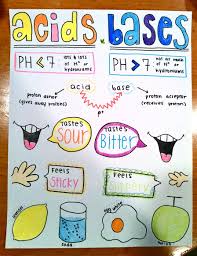 acids v. bases
PH < 7 lots & lots of H+ or hydroniums
PH > 7 not as much H+ or hydroniums
acid base
proton donor (gives away protons)
proton acceptor (receives protons)
p+
Tastes Sour
Tastes Bitter
Feels Sticky
Feels Slippery
lemon
soda
egg